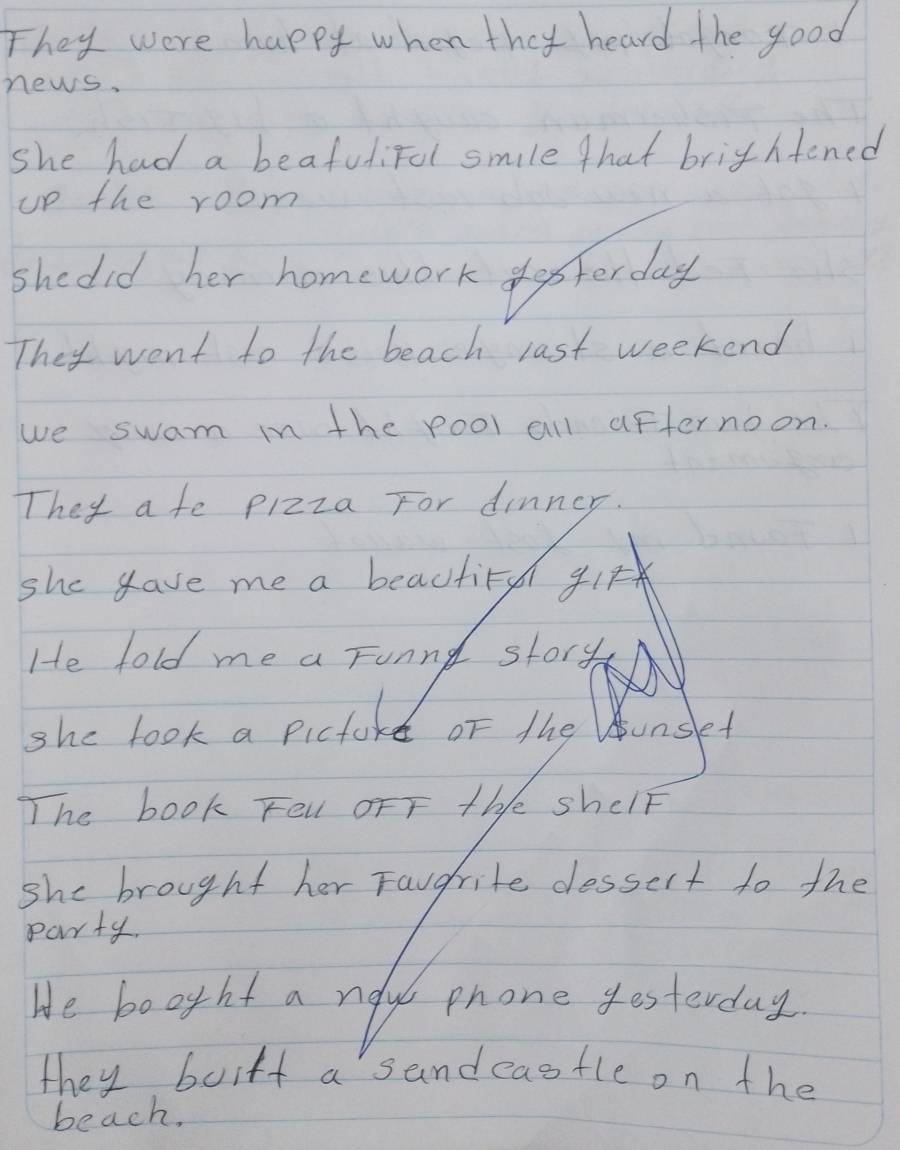 They were happy when they heard the good
news.
she had a beafutiful smile that brightened
up the room
she did her homework yesterday
They went to the beach last weekend
we swam in the pool all afternoon.
They ate pizza for dinner.
she gave me a beautiful gift
He told me a funny story
she took a picture of the sunset
The book fell off the shelf
She brought her favorite dessert to the
party.
He booght a new phone yesterday.
they built a sandcastle on the
beach.